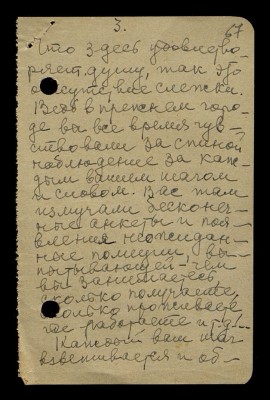 3.
67
Что здесь удовлетво-
ряет душу, так это
отсутствие слежки.
Ведь в прежнем горо-
де вы все время чув-
ствовали за спиной
наблюдение за каж-
дым вашим шагом
и словом. Вас там
измучали бесконеч-
ные анкеты и поя-
вления неожидан-
ные полиции, вы-
пытывающей – чем
вы занимаетесь,
сколько получаете,
сколько проживаете,
где работаете и т.д!..
Каждый ваш шаг
взвешивается и об-